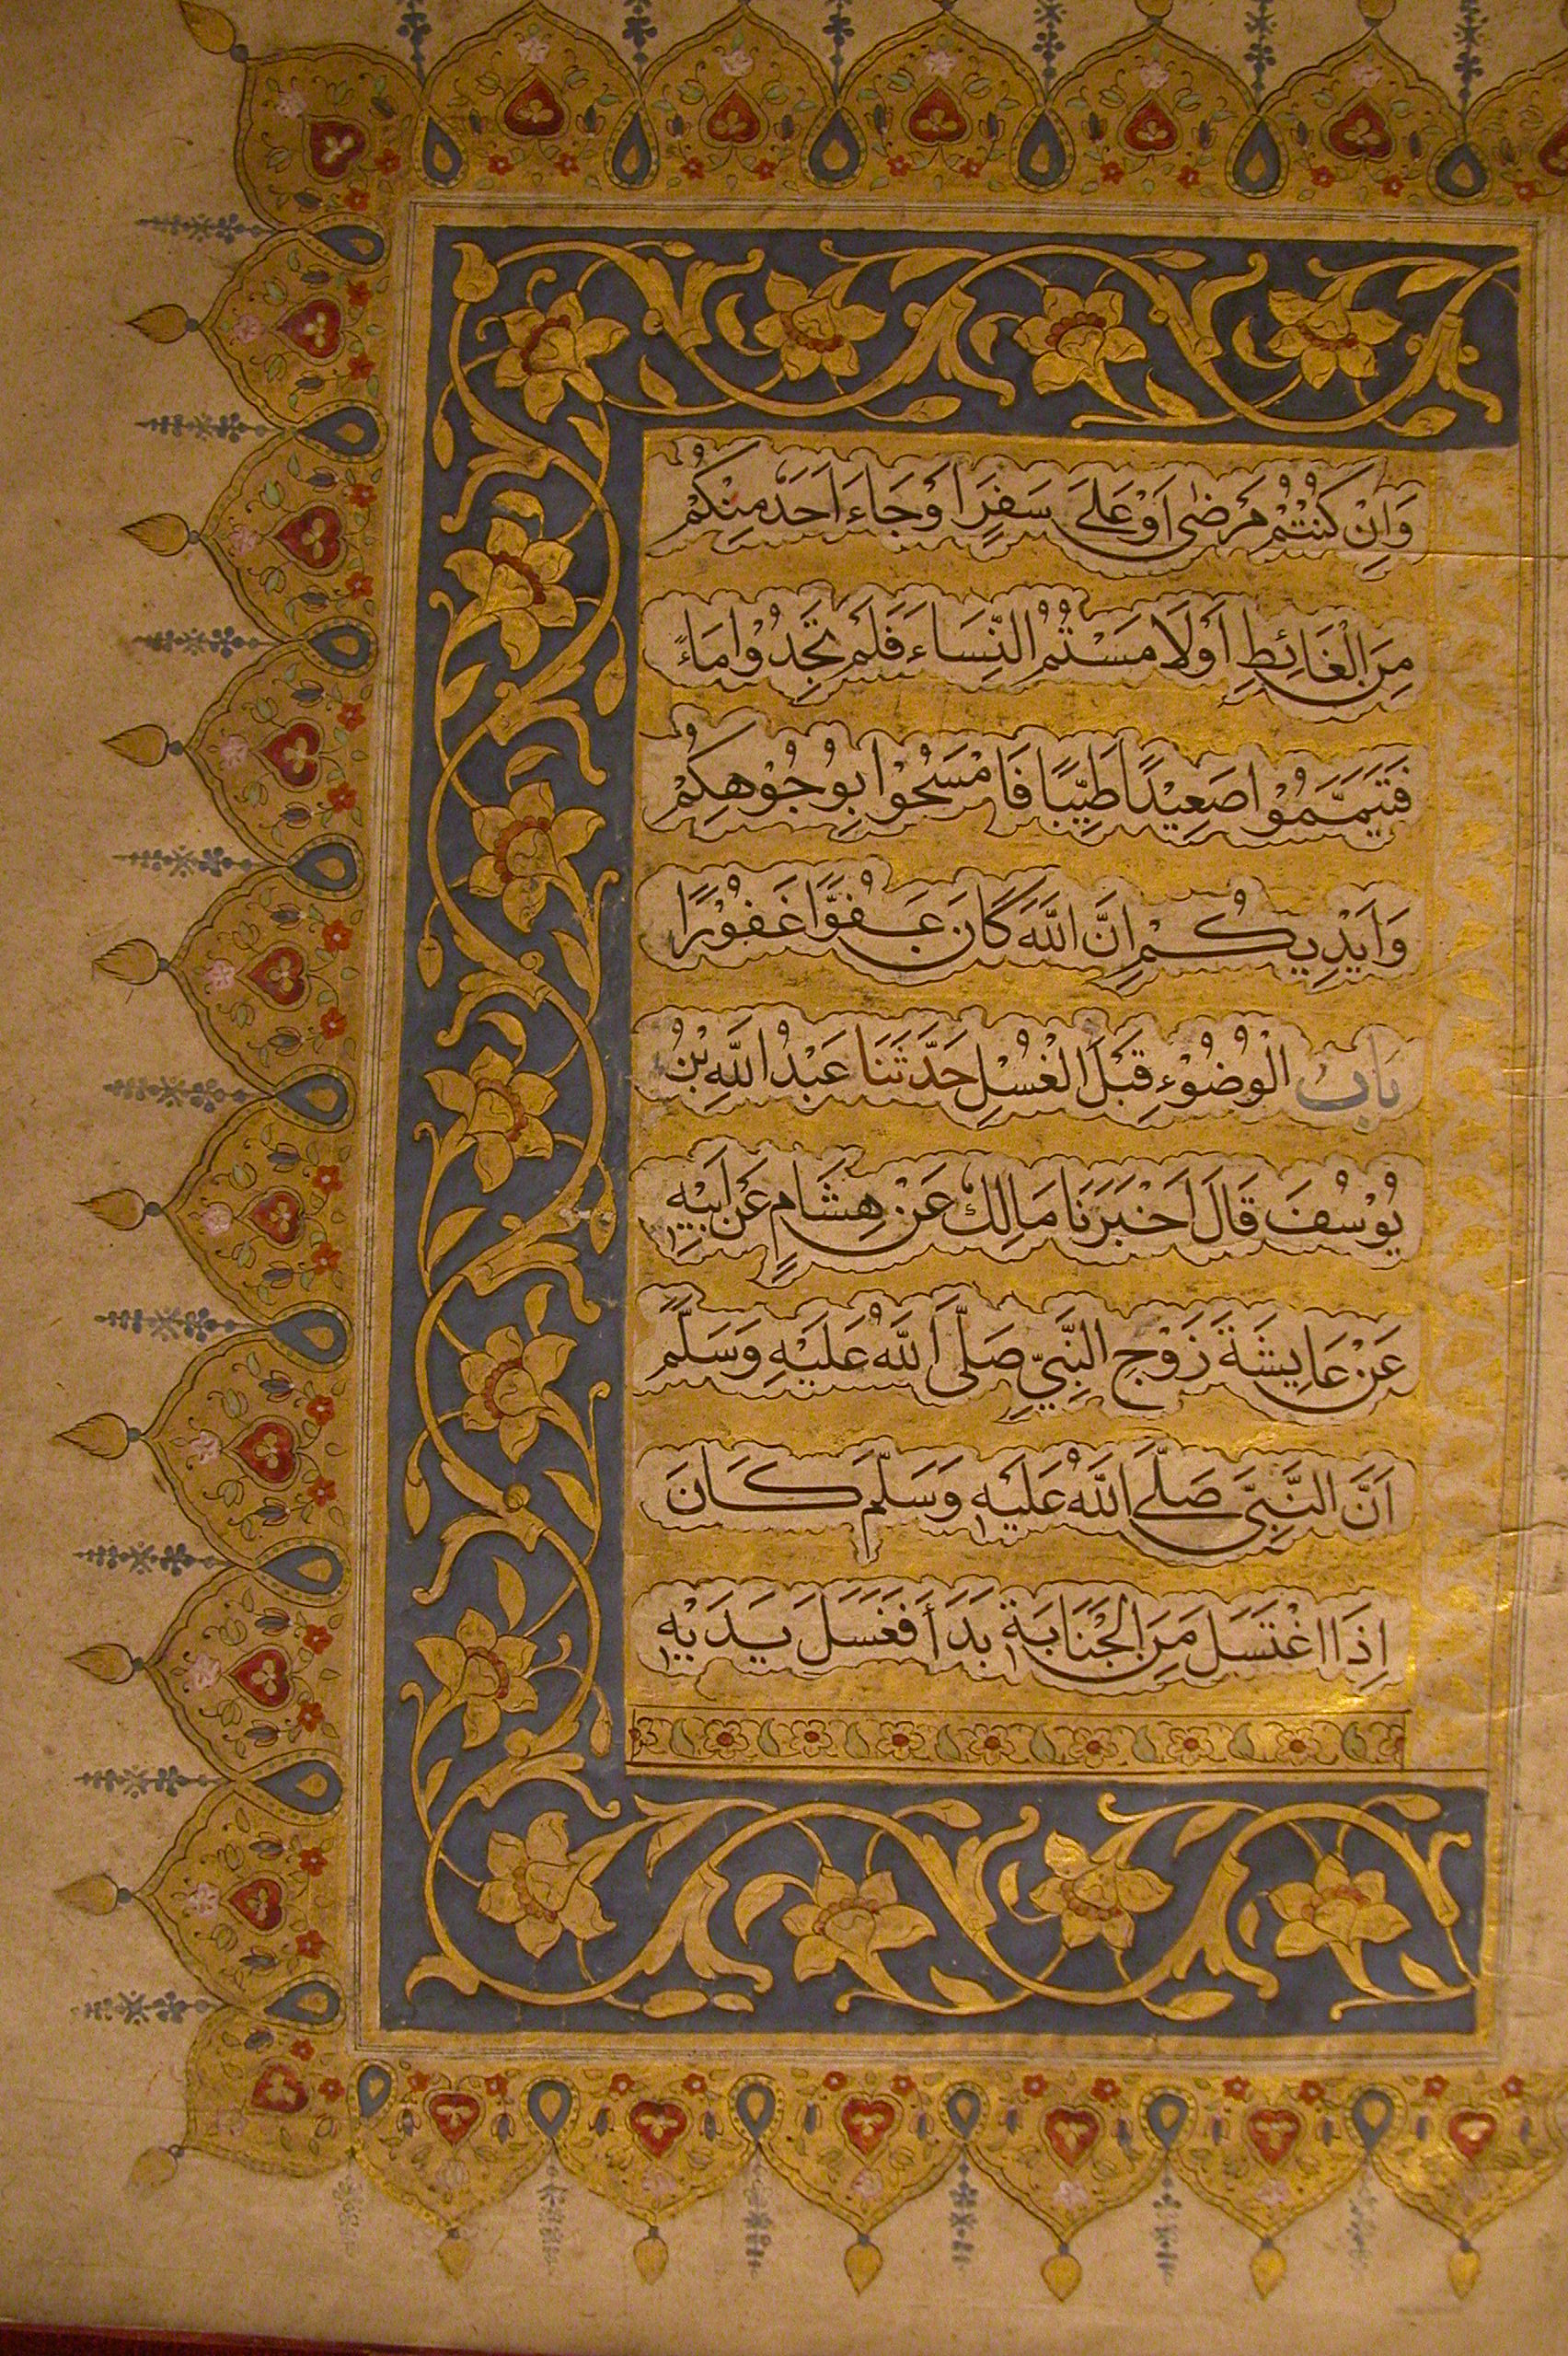 وَاِنْ كُنْتُمْ مَرْضٰى اَوْ عَلىَ سَفَرٍ اَوْ جَاءَ اَحَدٌ مِنْكُمْ
مِنَ الْغَائِطِ اَوْ لَا مَسْتُمُ النِّسَاءَ فَلَمْ تَجِدُوْا مَاءً
فَتَيَمَّمُوْا صَعِيْدًا طَيِّبًا فَامْسَحُوْا بِوُجُوْهِكُمْ
وَاَيْدِيكُمْ اِنَّ اللّٰهَ كَانَ عَفُوًّا غَفُوْرًا
بَابُ الْوُضُوْءِ قَبْلَ الْغُسْلِ حَدَّثَنَا عَبْدُ اللّٰهِ بْنُ
يُوْسُفَ قَالَ اَخْبَرَنَا مَالِكٌ عَنْ هِشَامٍ عَنْ اَبِيْهِ
عَنْ عَايِشَةَ زَوْجِ النَّبِيِّ صَلَّى اللّٰهُ عَلَيْهِ وَسَلَّمَ
اَنَّ النَّبِيَّ صَلَّى اللّٰهُ عَلَيْهِ وَسَلَّمَ كَانَ
اِذَا اغْتَسَلَ مِنَ الْجَنَابَةِ بَدَأَ فَغَسَلَ يَدَيْهِ